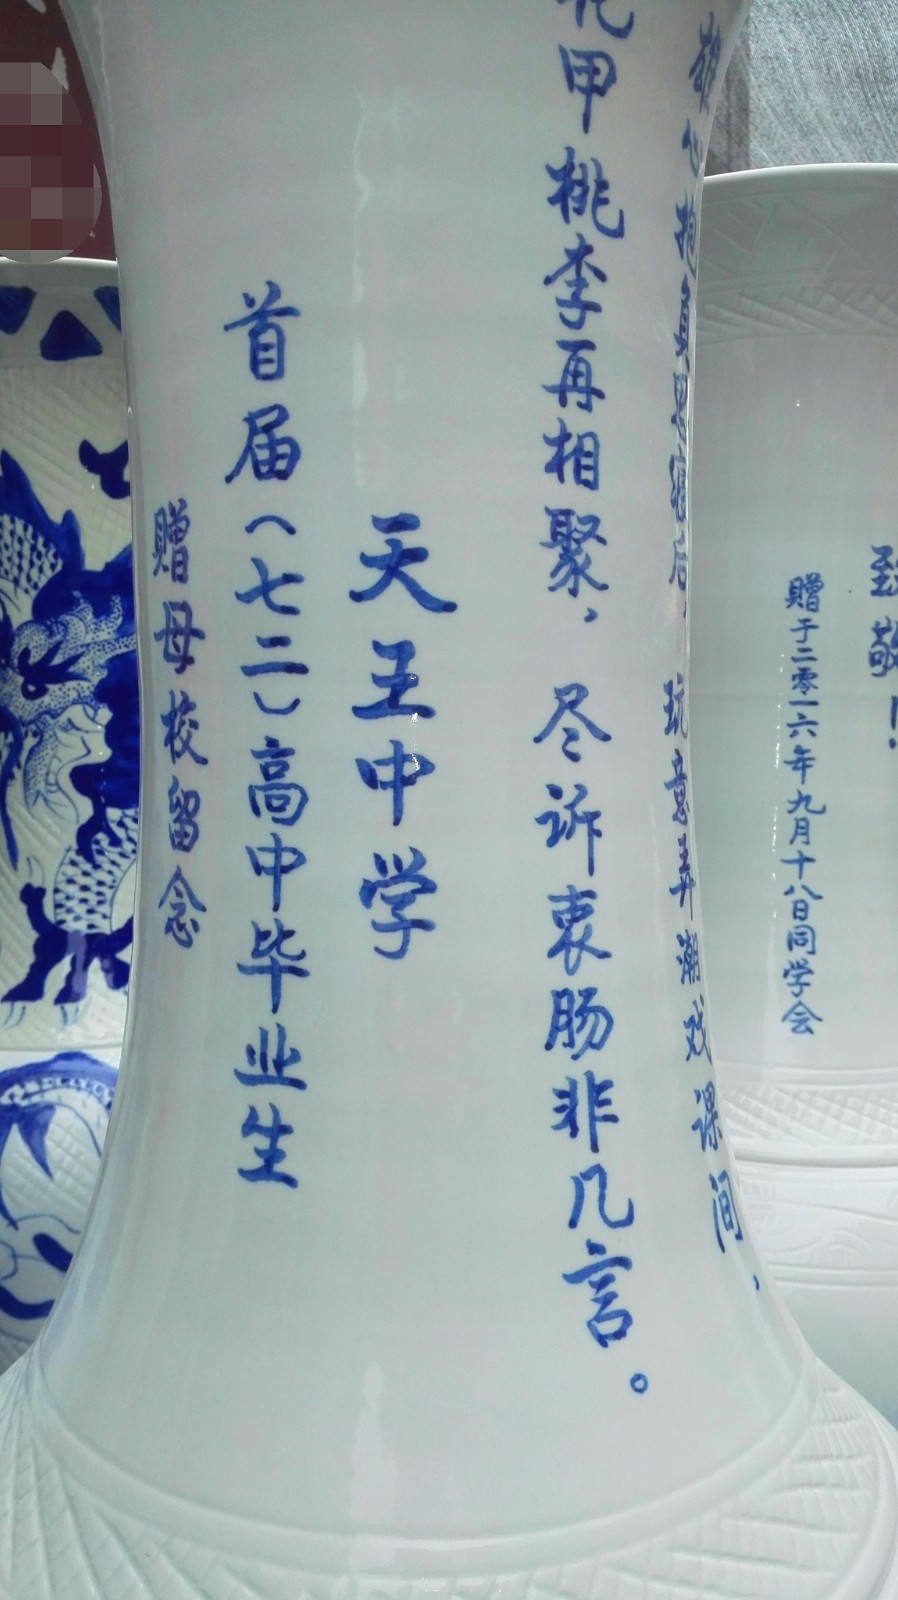 致敬！
赠于二零一六年九月十八日同学会
雄心抱负后，玩意弄潮戏课间，
花甲桃李再相聚，尽诉衷肠非几言。
天王中学
首届（七二）高中毕业生
赠母校留念